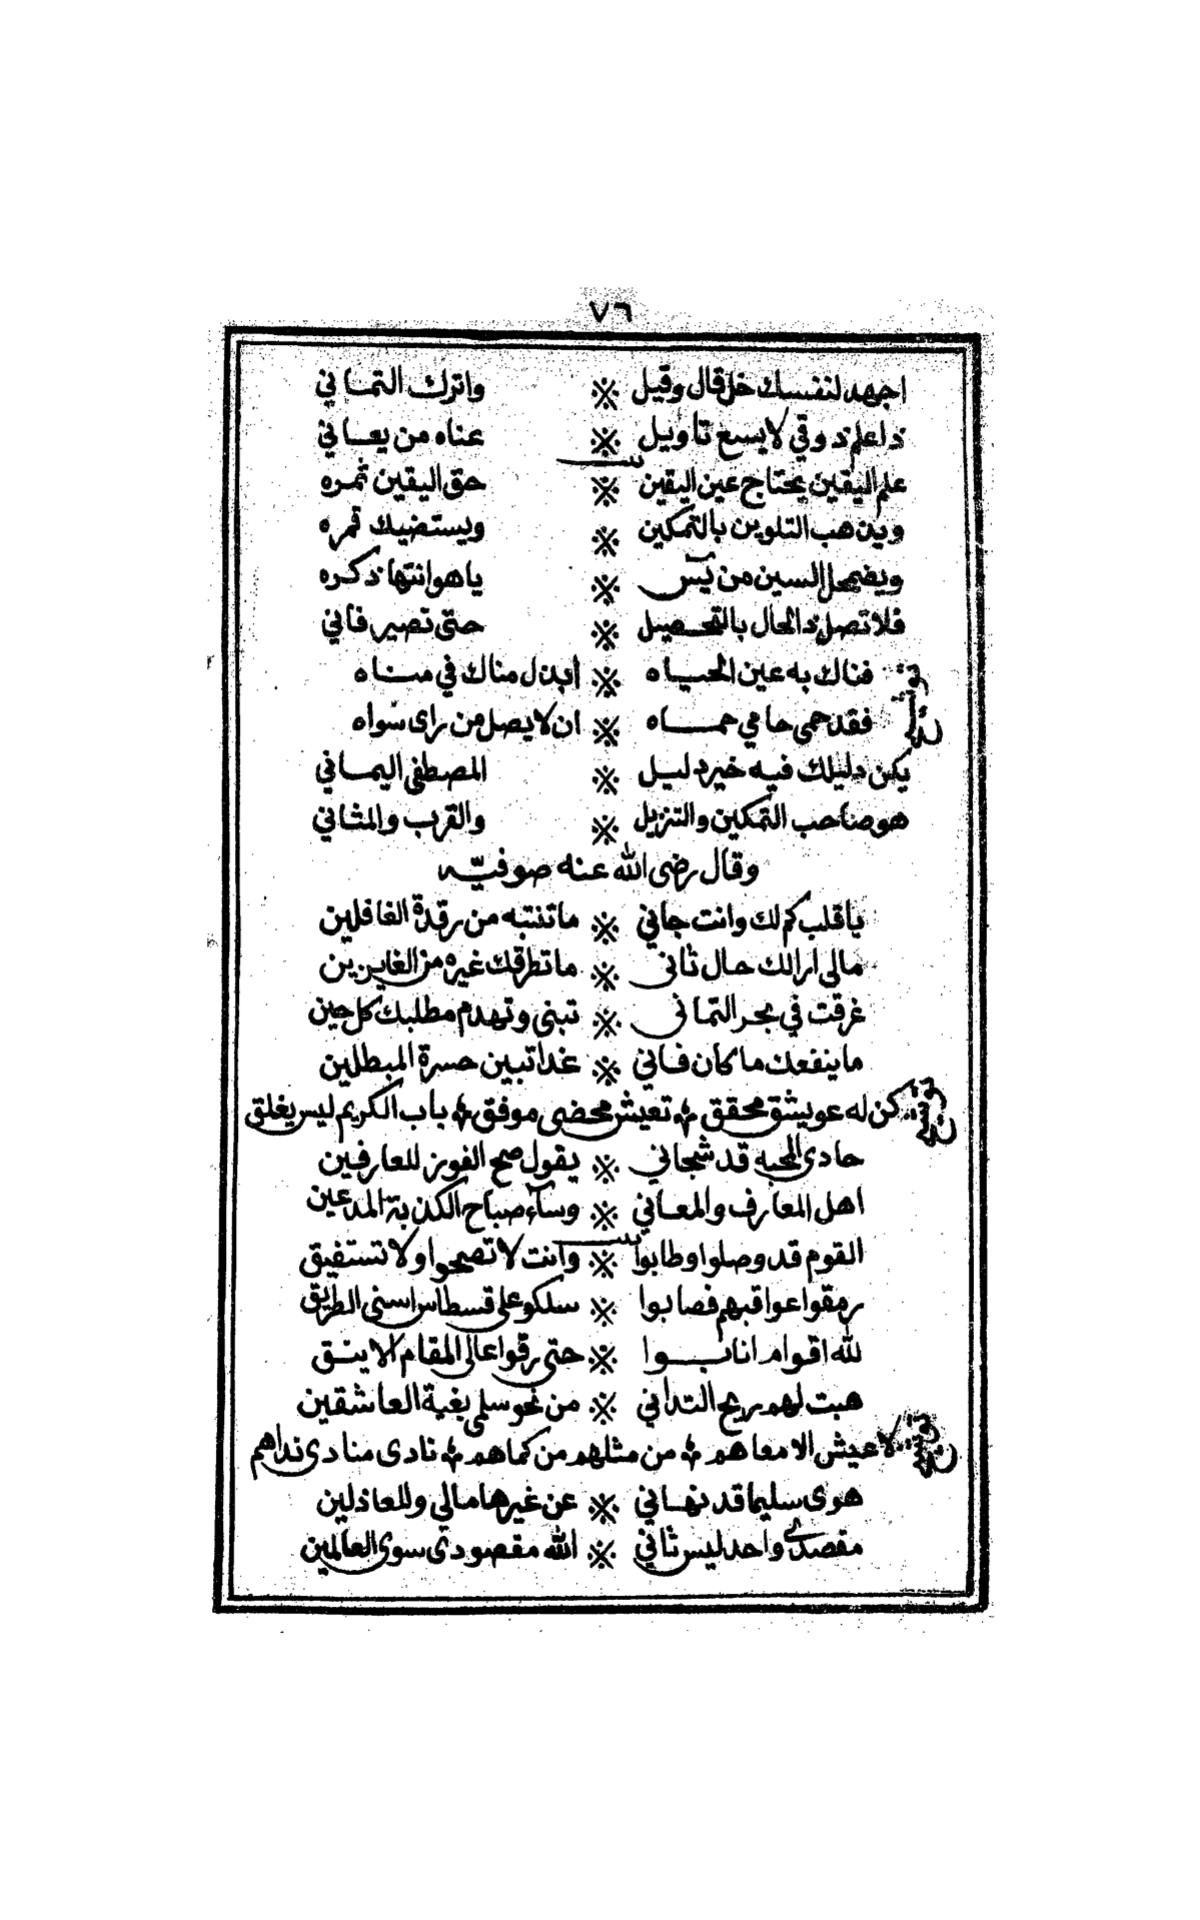 ٧٦
اجهد لنفسك خل قال وقيل ※ واترك التماني
ذا علم ذوقي لا يسع تأويل ※ عناه من يعاني
علم اليقين يحتاج عين اليقين ※ حق اليقين ثمره
ويذهب التلوين بالتمكين ※ ويستضيك قمره
ويضمحل السين من يس ※ ياهو انتها ذكره
فلا تصل ذا الحال بالتحصيل ※ حتى تصير فاني
فناك به عين الحياه ※ ابذل مناك في مناه
فقد حمى حامي حماه ※ ان لا يصل من راى سواه
يكن دليلك فيه خير دليل ※ المصطفى اليماني
هو صاحب التمكين والتنزيل ※ والقرب والمثاني
وقال رضى الله عنه صوفيّه
ياقلب كم لك وانت جاني ※ ماتنتبه من رقدة الغافلين
مالي ارالك حال ثاني ※ ماتطرقك غيره من الغايرين
غرقت في بحر التماني ※ تبنى وتهدم مطلبك كل حين
ماينفعك ما كان فاني ※ غدا تبين حسرة المبطلين
كن له عويشق محقق ※ تعيش محضى موفق ※ باب الكريم ليس يغلق
حادى المحبه قد شجاني ※ يقول صح الفوز للعارفين
اهل المعارف والمعاني ※ وساء صباح الكذبة المدعين
القوم قد وصلوا وطابوا ※ وانت لا تصحوا ولا تستفيق
رمقوا عواقبهم فصابوا ※ سلكو على قسطاس اسنى الطريق
لله اقوام انابوا ※ حتى رقوا عالى المقام الانيق
هبت لهم ريح التداني ※ من نحو سلمى بغية العاشقين
لا عيش الا معاهم ※ من مثلهم من كماهم ※ نادى منادى نداهم
هوى سليما قد نهاني ※ عن غيرها مالي وللعاذلين
مقصدى واحد ليس ثاني ※ الله مقصودى سوى العالمين